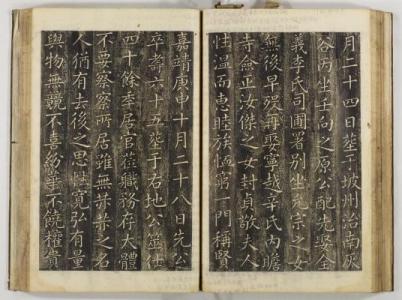 月二十四日葬于坡州治南炭
谷丙坐壬向之原公配先娶全
義李氏司圃署別坐克宗之女
無後早歿再娶寧越辛氏內贍
寺僉正汝傑之女封貞敬夫人
性溫而惠睦族恤窮一門稱賢
嘉靖庚申十月二十八日先公
卒壽六十五葬于右地公筮仕
四十餘年居官莅職務存大體
不要察察所居雖無赫赫之名
人猶有去後之思性寬弘有量
與物無競不喜紛華不饒權貴